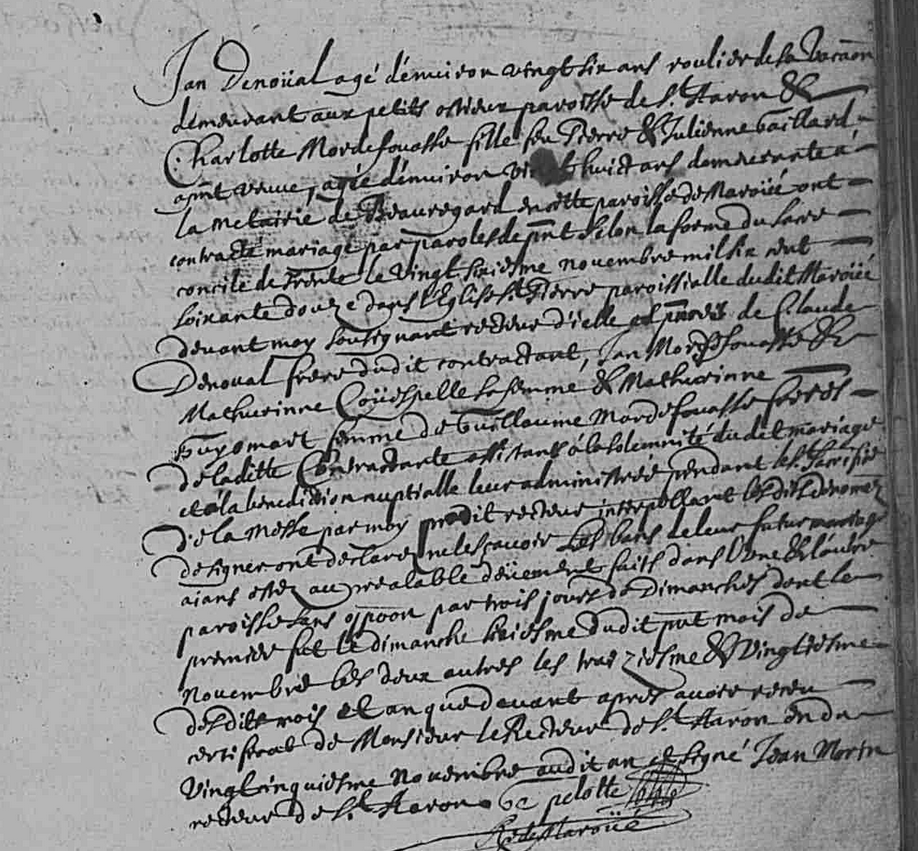 Jan Denoüal agé d'enuiron vingt six ans roulier de sa vacaon
demeurant aux petits ostieux paroisse de St Aaron &
Charlotte Mordefouasse fille feu Pierre & Julienne Gaillard
agée d'enuiron huict ans demeurante a
la metairie de Beauregard en cette paroisse de Maroüé ont
contracté mariage par paroles de pnt selon la forme du sacré
concile de Trente le vingt sixiesme novembre mil six cent
soixante douze dans l'Eglise St Pierre paroissialle dudit Maroüé
devant moy soussignant recteur d'icelle de Claude
Denoual frere dudit contractant, Jan Mordefouasse &
Mathurinne Coüespelle sa femme & Mathurinne
Guyomart femme de Guillaume Mordefouasse freres
de laditte Contractante assistants à la solemnité dudit mariage
et a la benediction nuptialle leur administrée pendant le St Sacrifice
de la Messe par moy recteur interpellant lesdits denomez
de signer ont declaré ne le sçavoir les bans de leur futur mariage
aians estez au prealable deüement faits dans l'une & l'autre
paroisse sans oppoon par trois jours de dimanches dont le
premier fut le dimanche sixiesme dudit pnt mois de
Novembre les deux autres les traiziesme & vingtiesme
desdits mois et an que devant apres avoir receu
certificat de Monsieur le Recteur de St Aaron en da
vingt cinquiesme Novembre audit an & signé Jean Morin
recteur de St Aaron pelotte
R de Maroüé